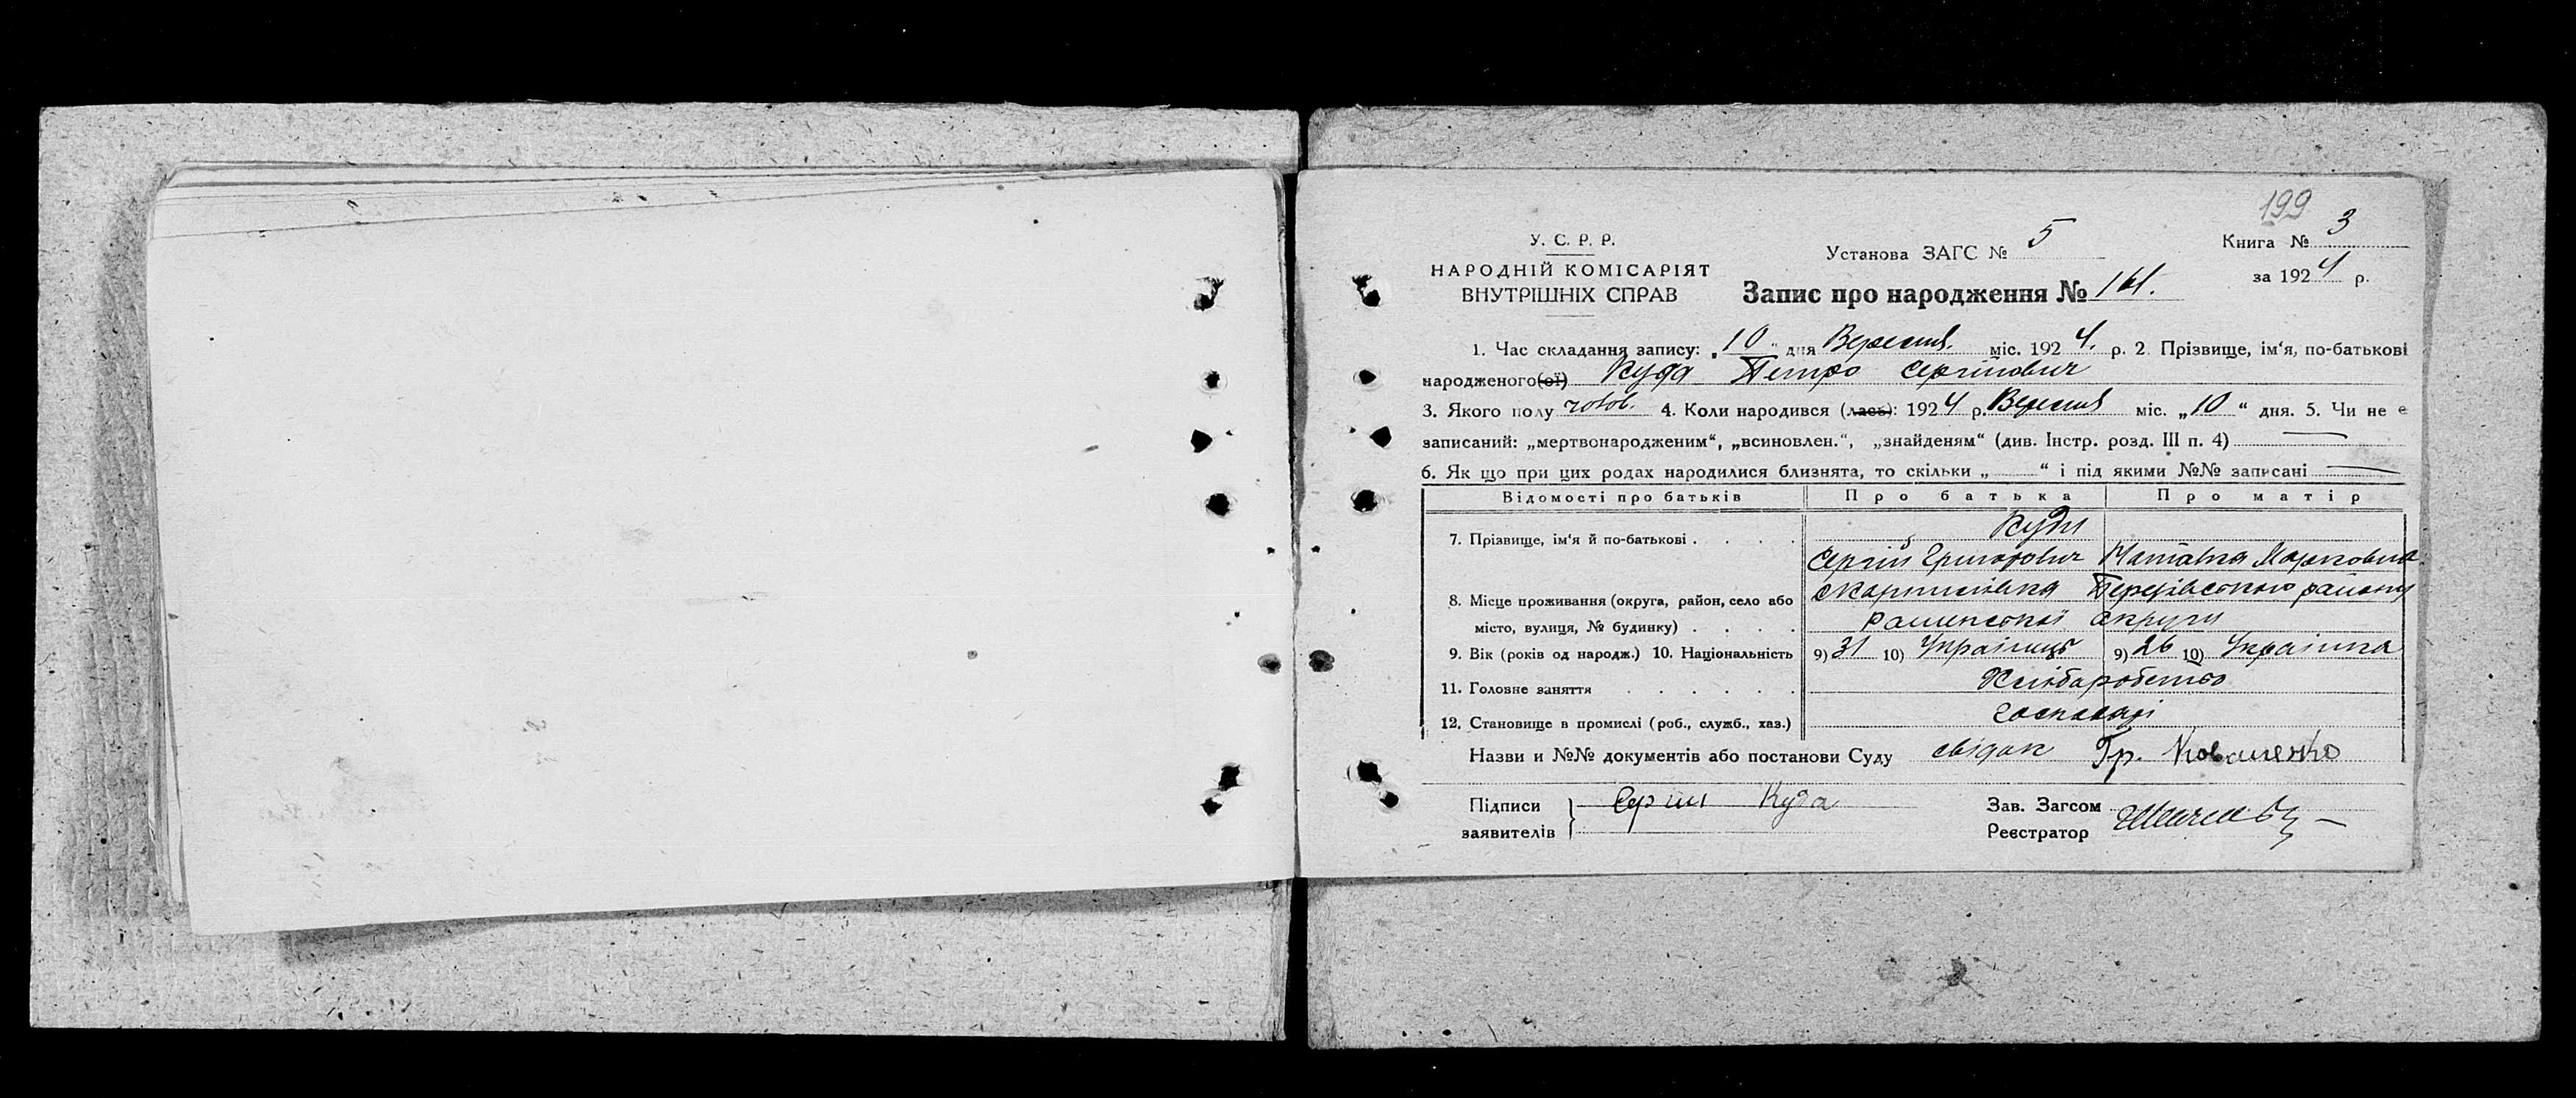 199
У. С. Р. Р.
НАРОДНІЙ КОМІСАРІЯТ
ВНУТРІШНІХ СПРАВ
Установа ЗАГС № 5
Книга № 3
за 1924 р.
Запис про народження № 161.
1. Час складання запису: „10“ дня Вересня. міс. 1924. р. 2 Прізвище, ім‘я, по-батькові
народженого(ої) Куда Петро Сергійович
3. Якого полу чолов. 4. Коли народився (лась): 1924 р. Вересня міс. „10“ дня. 5. Чи не е
записаний: „мертвонародженим“, „всиновлен.“, „знайденям“ (див. Інстр. розд. III п. 4) —
6. Як що при цих родах народилися близнята, то скільки „—“ і під якими №№ записані —
Відомості про батьків Про батька Про матір
7. Прізвище, ім‘я й по-батькові . . . . Куди
Сергій Григорович Наталка Марковна
8. Місце проживання (округа, район, село або Перекопівського району
місто, вулиця, № будинку) . . . . Роменської округи
9. Вік (років од народж.) 10. Національність 9) 31 10) Українець 9) 26 10) Українка
11. Головне заняття . . . . . . Хліборобство
12. Становище в промислі (роб., служб., хаз.) господарі
Назви и №№ документів або постанови Суду свідок Гр. Коваленко
Підписи Сергій Куда
заявителів
Зав. Загсом
Реєстратор